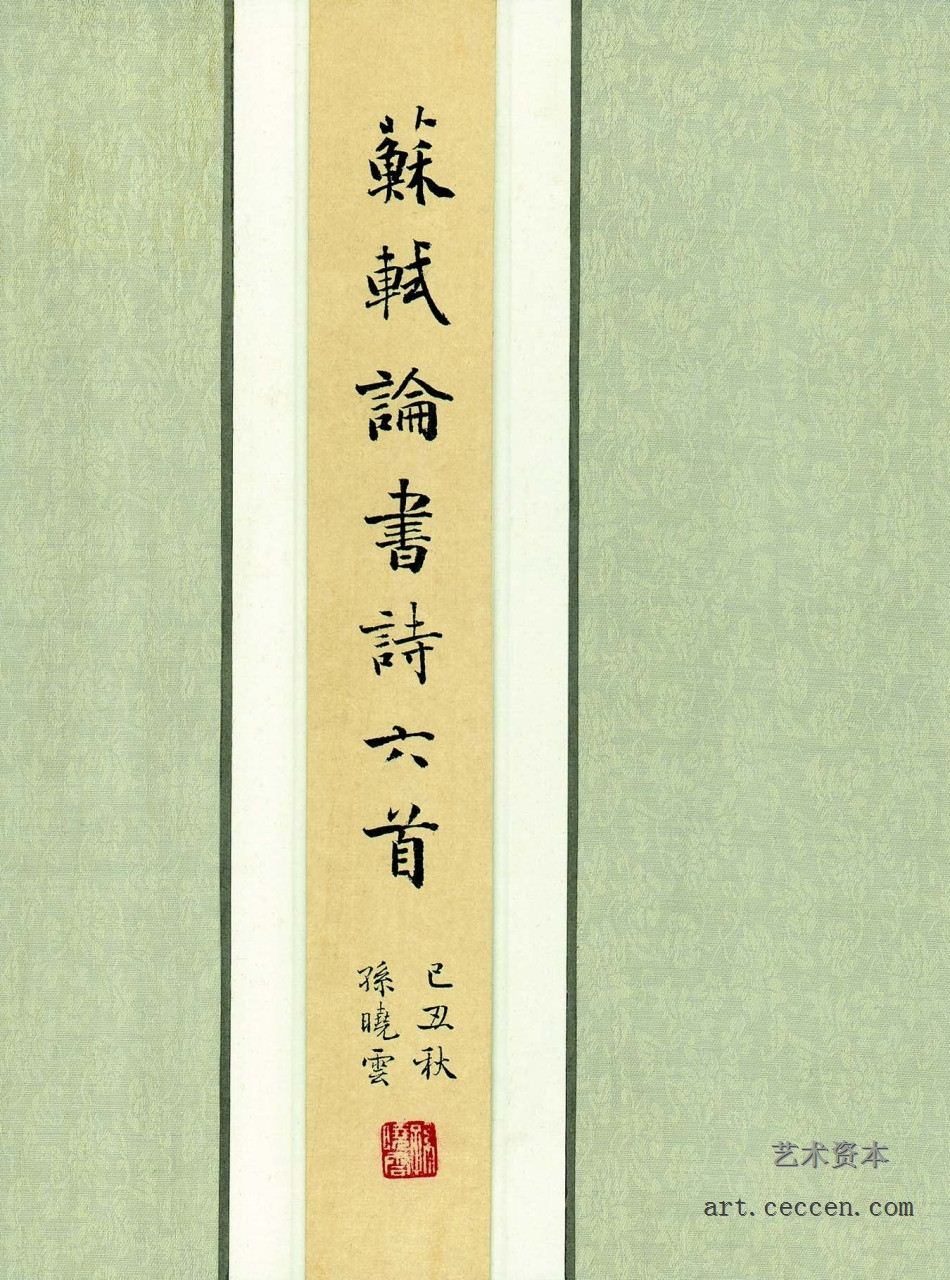 蘇軾論書詩六首
己丑秋
孫曉雲
艺术资本
art.ceccen.com